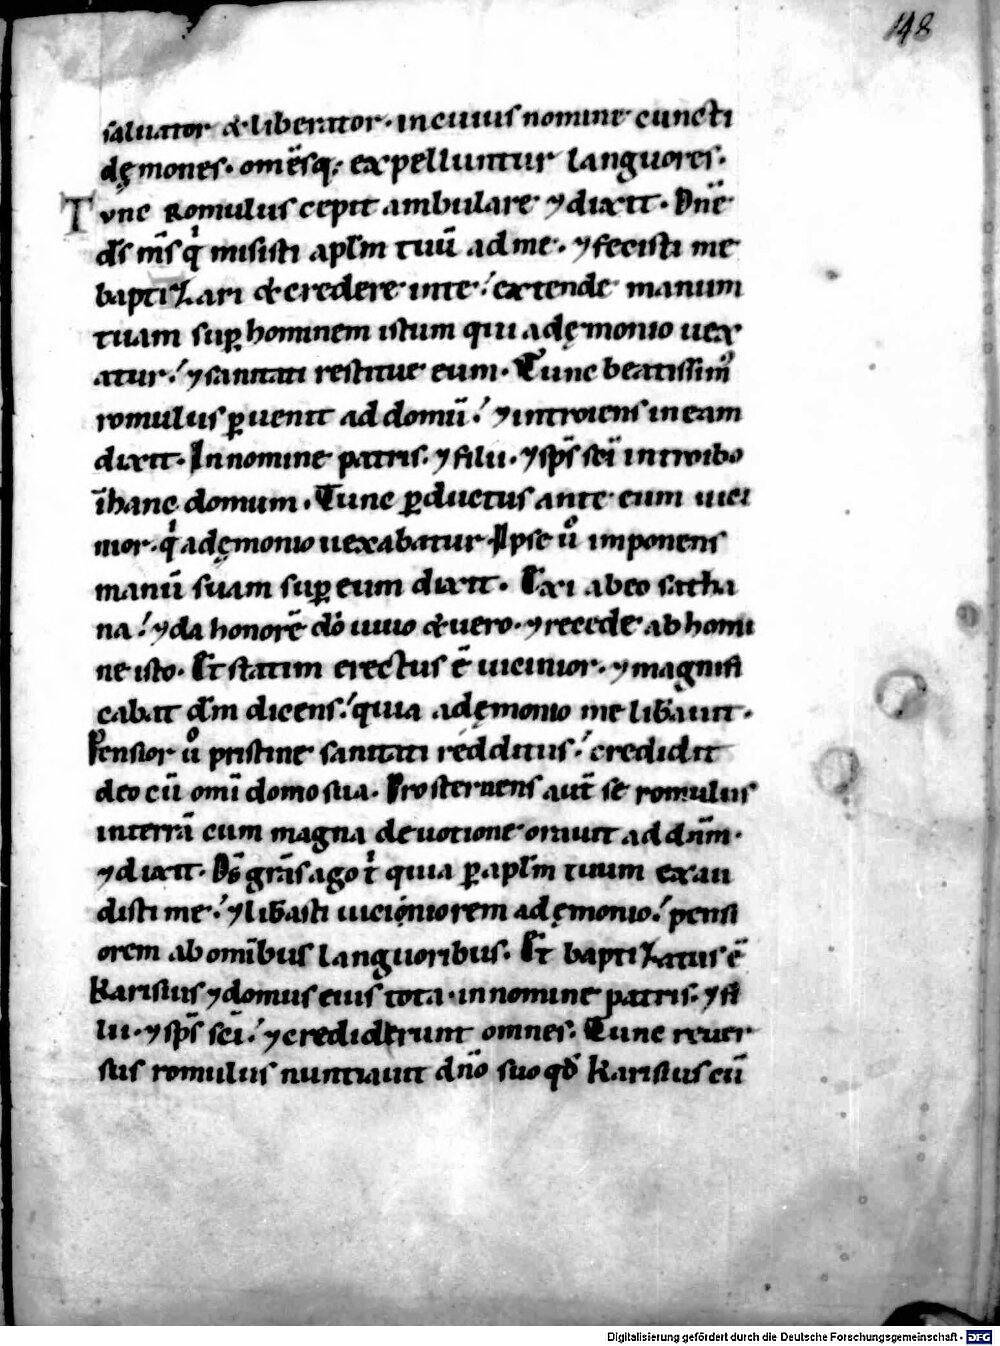 148
saluator & liberator · in cuius nomine cuncti
dęmones · om̅sq; expelluntur languores.
Tunc Romulus cepit ambulare ⁊ dixit · Dn̅e
ds̅ ms̅ qͥ misisti apl̅m tuū ad me · ⁊ fecisti me
baptizari & credere in te · extende manum
tuam suꝑ hominem istum qui a dęmonio uex
atur · ⁊ sanitati restitue eum · Tunc beatissimꝰ
romulus ꝑuenit ad domū · ⁊ introiens in eam
dixit · In nomine patris · ⁊ filii · ⁊ sps̅ sc̅i introibo
ī hanc domum · Tunc ꝑductus ante eum uici
nior · qͥ a dęmonio uexabatur · Ipse uͦ imponens
manū suam suꝑ eum dixit · Exi ab eo satha
na · ⁊ da honorē do̅ uiuo & uero · ⁊ recede ab homi
ne isto · Et statim erectus ē uicinior · ⁊ magnifi
cabat dm̅ dicens · quia a dęmonio me lib̅auit ·
Pensior uͦ pristine sanitati redditus · credidit
deo cū omī domo sua · Prosternens aut̅ se romulus
in terrā cum magna deuotione orauit ad dn̅m ·
⁊ dixit · Ds̅ gra̅s ago tͥ quia ꝑ apl̅m tuum exau
disti me · ⁊ lib̅asti uiciniorem a dęmonio · pensi
orem ab omībus languoribus · Et baptizatus ē
Karisius ⁊ domus eius tota · in nomine patris · ⁊ fi
lii · ⁊ sps̅ sc̅i · ⁊ crediderunt omnes · Tunc reuer
sus romulus nuntiauit dn̅o suo qd̅ Karisius cū
Digitalisierung gefördert durch die Deutsche Forschungsgemeinschaft - DFG